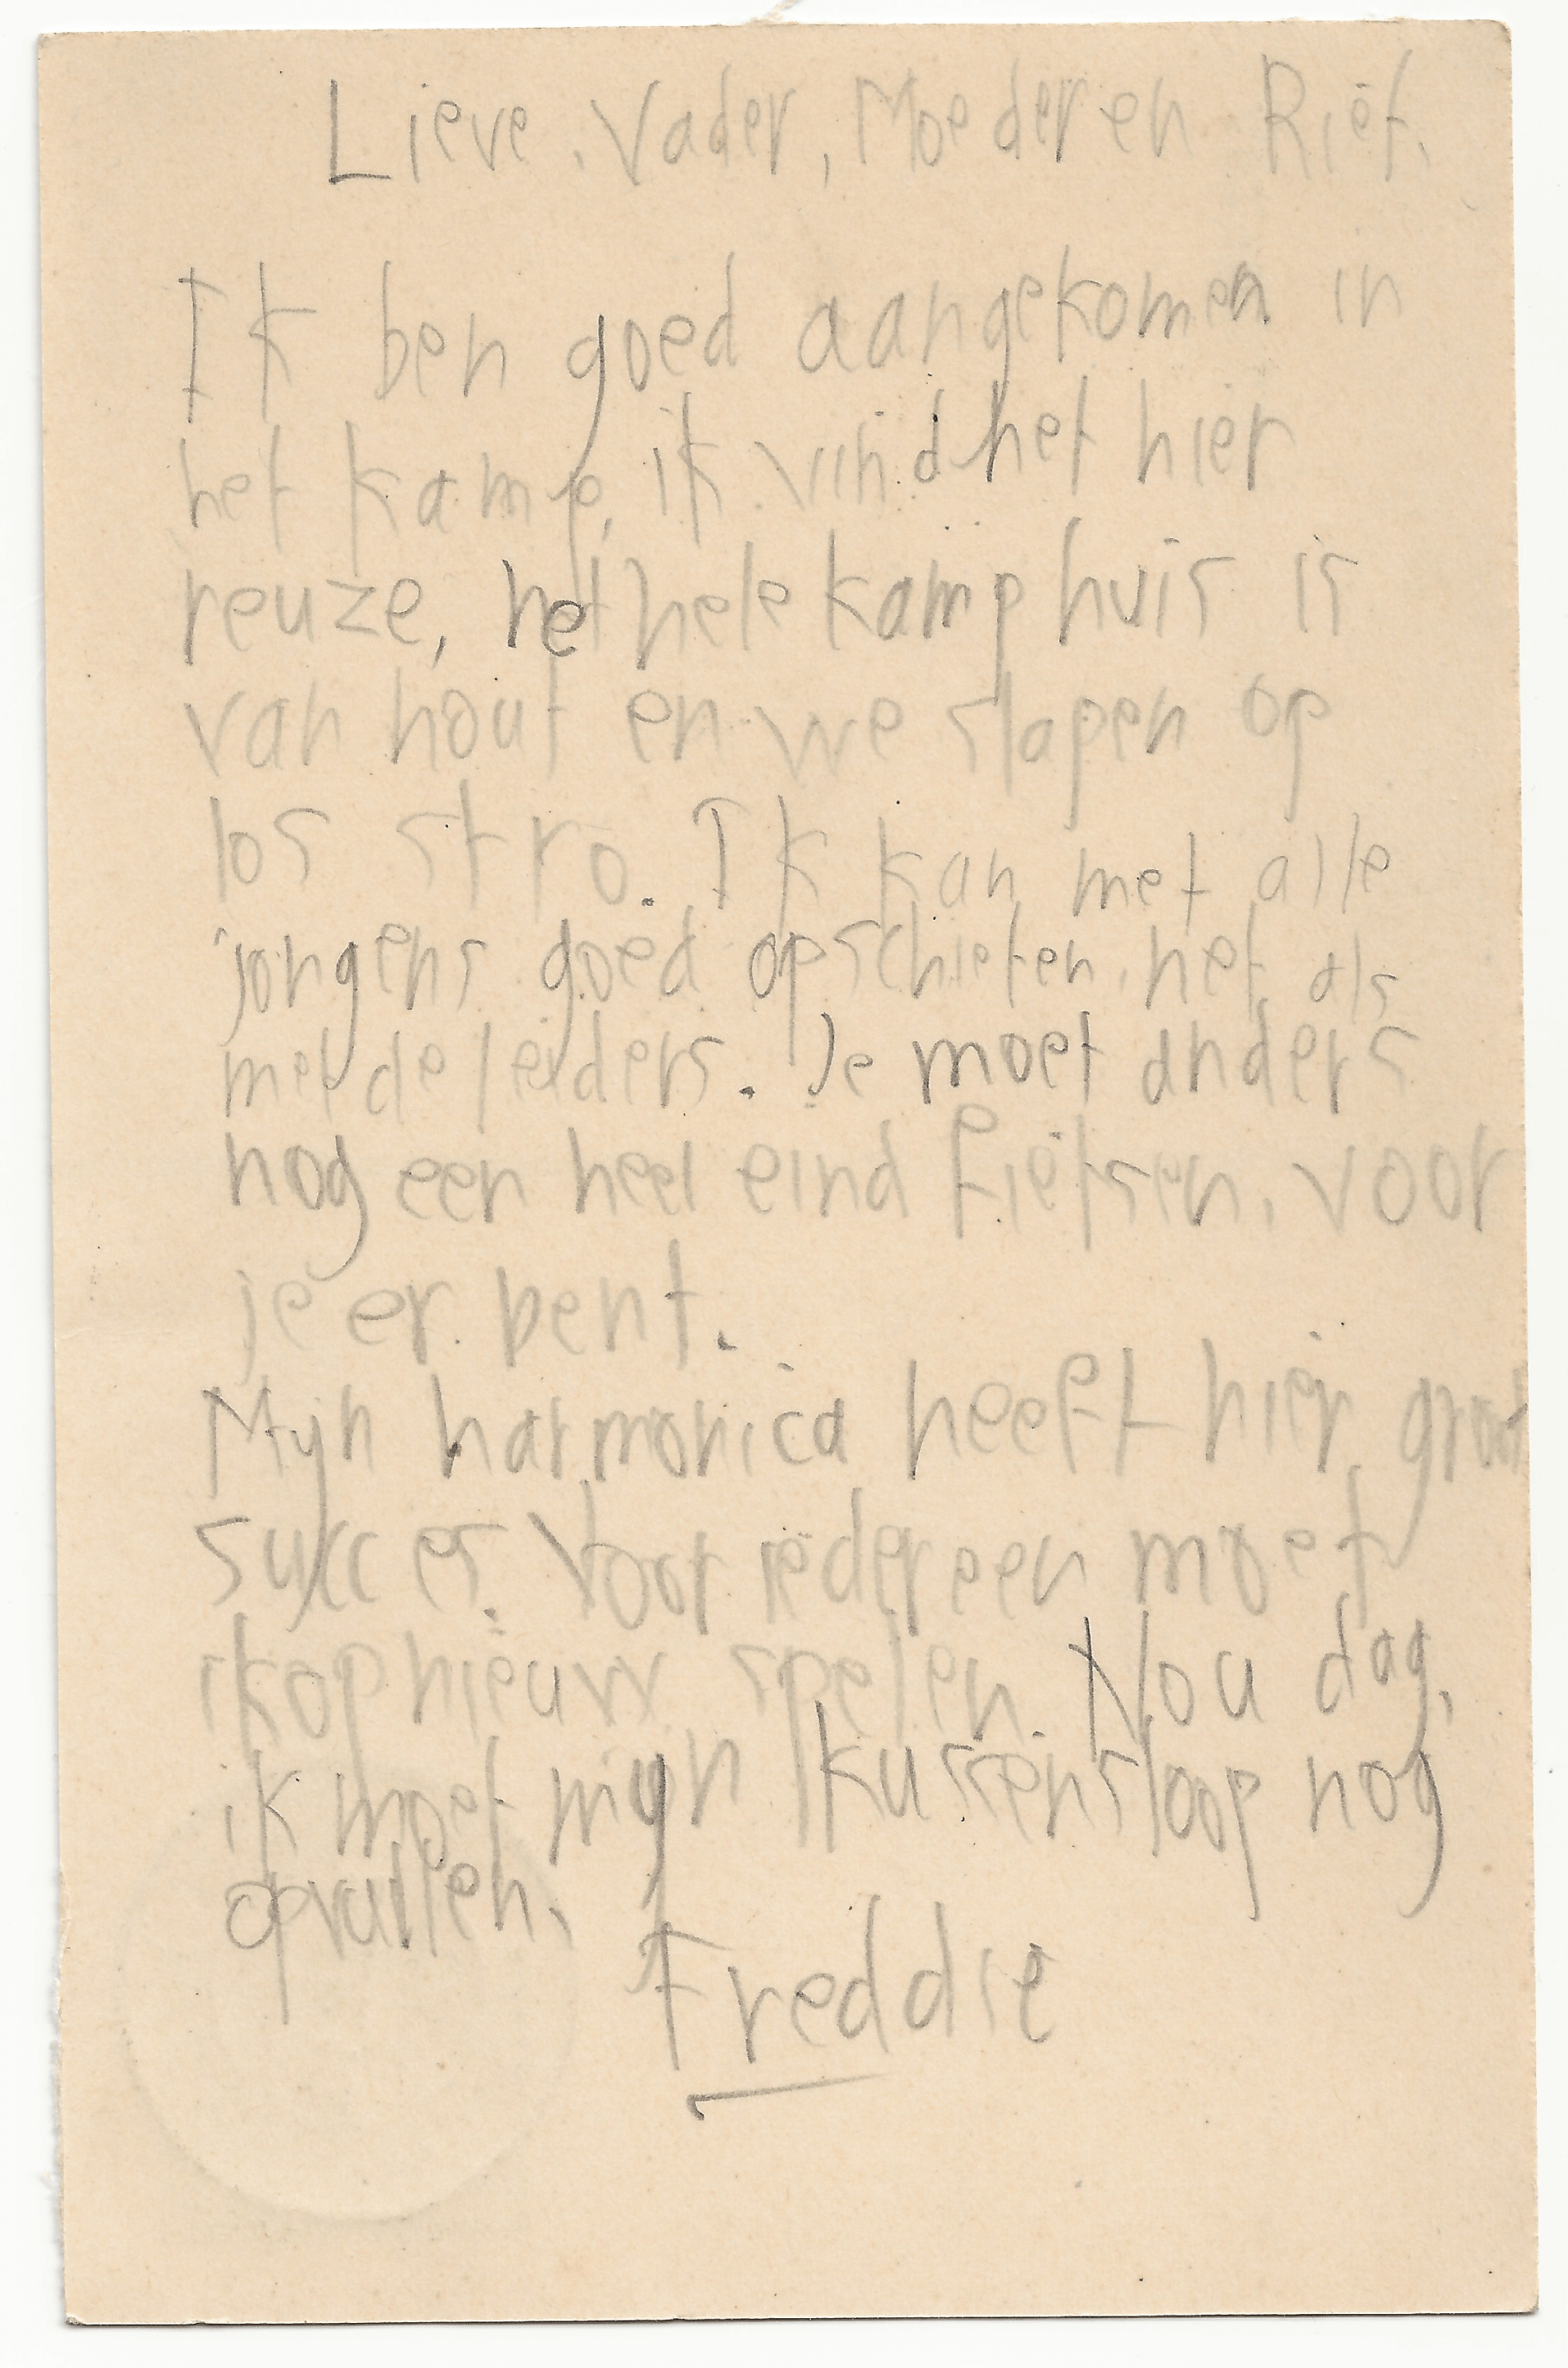 Lieve Vader, Moeder en Riet.
Ik ben goed aangekomen in
het kamp, ik vind het hier
reuze, het hele kamphuis is
van hout en we slapen op
los stro. Ik kan met alle
jongens goed opschieten, net als
met de leiders. Je moet anders
nog een heel eind fietsen, voor
je er bent.
Mijn harmonica heeft hier groot
sukces. Voor iedereen moet
ik opnieuw spelen. Nou dag,
ik moet mijn kussensloop nog
opvullen.
Freddie